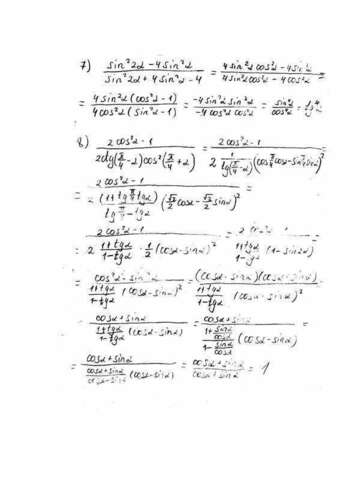 7) (sin²2α - 4sin²α)/(sin²2α + 4sin²α - 4) = (4sin²α cos²α - 4sin²α)/(4sin²α cos²α - 4cos²α) =
= (4sin²α(cos²α - 1))/(4cos²α(sin²α - 1)) = (-4sin²α sin²α)/(-4cos²α cos²α) = sin⁴α/cos⁴α = tg⁴α
8) (2cos²α - 1)/(2ctg(π/4 - α)cos²(π/4 + α)) = (2cos²α - 1)/(2 1/tg(π/4 - α) (cos π/4 cosα - sin π/4 sinα)²)
= (2cos²α - 1)/(2 (1 + tg π/4 tgα)/(tg π/4 - tgα) (√2/2 cosα - √2/2 sinα)²) =
(2cos²α - 1)/(2 (1+tgα)/(1-tgα) · 1/2 (cosα - sinα)²) = /((1+tgα)/(1-tgα) (1 - sin2α))
= (cos²α - sin²α)/((1+tgα)/(1-tgα) (cosα - sinα)²) = ((cosα - sinα)(cosα + sinα))/((1+tgα)/(1-tgα) (cosα - sinα)²)
(cosα + sinα)/((1+tgα)/(1-tgα) (cosα - sinα)) = (cosα + sinα)/((1 + sinα/cosα)/(1 - sinα/cosα) (cosα - sinα))
= (cosα + sinα)/((cosα + sinα)/(cosα - sinα) (cosα - sinα)) = (cosα + sinα)/(cosα + sinα) = 1